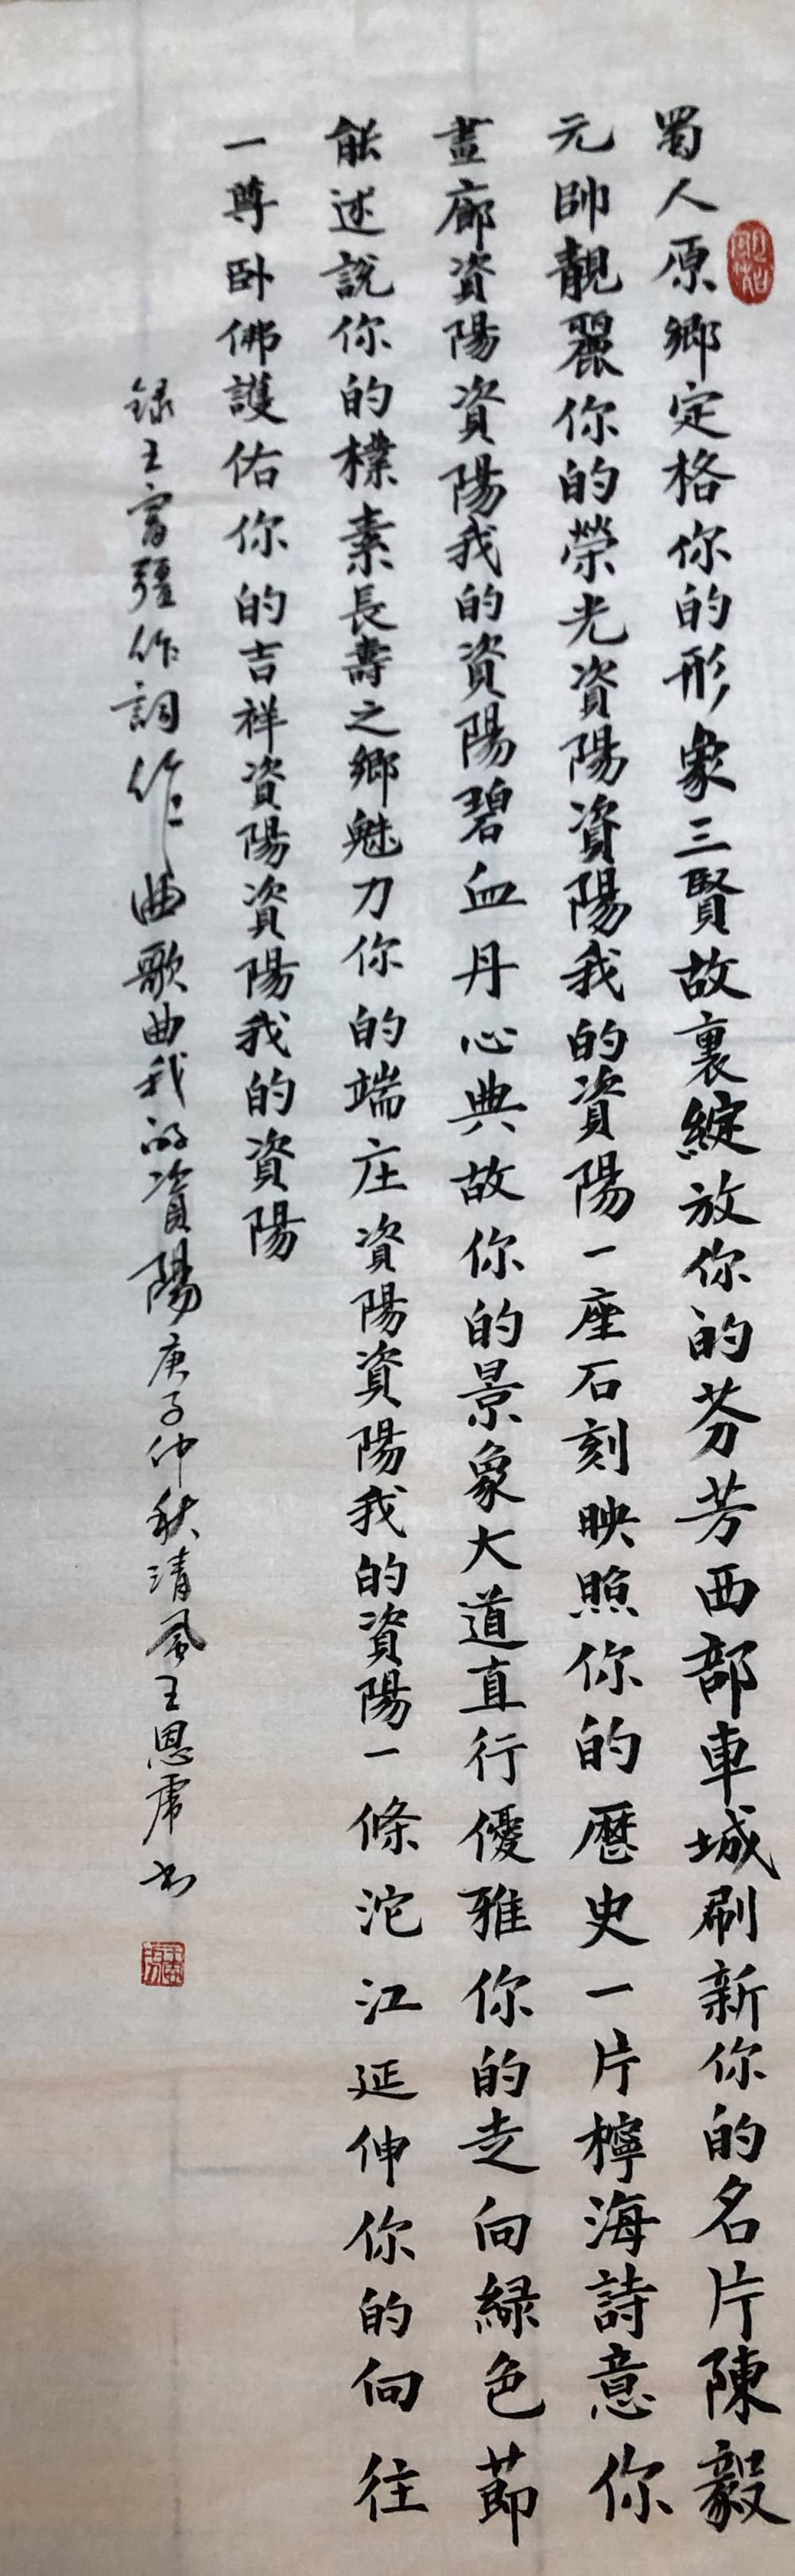 蜀人原鄉定格你的形象三賢故裏綻放你的芬芳西部車城刷新你的名片陳毅
元帥靚麗你的榮光資陽資陽我的資陽一座石刻映照你的歷史一片檸海詩意你
畫廊資陽資陽我的資陽碧血丹心典故你的景象大道直行優雅你的走向緑色節
能述說你的樸素長壽之鄉魅力你的端庄資陽資陽我的資陽一條沱江延伸你的向往
一尊卧佛護佑你的吉祥資陽資陽我的資陽
録王富強作詞作曲歌曲我的資陽庚子仲秋清風王恩席书